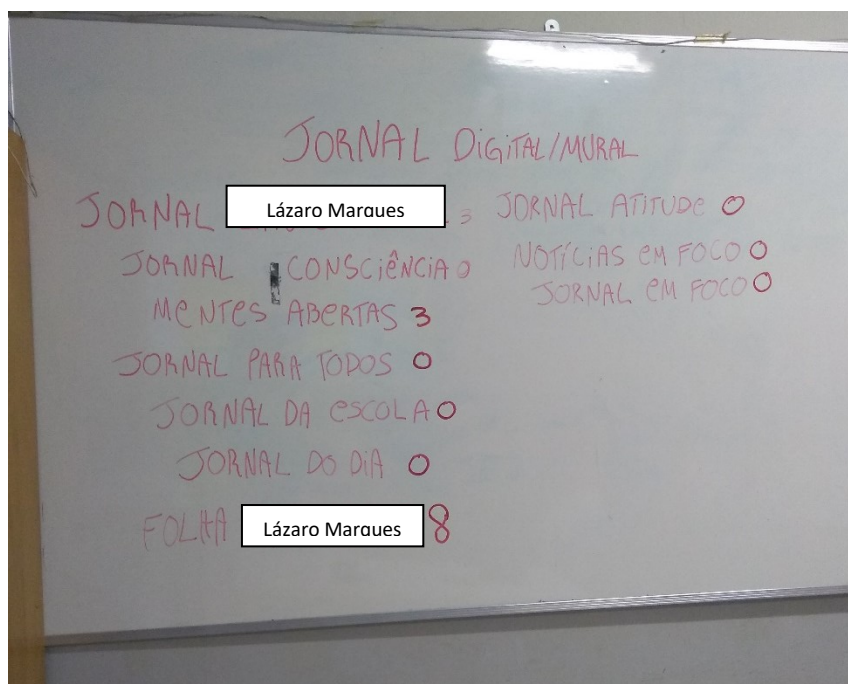 JORNAL DIGITAL/MURAL
JORNAL Lázaro Marques 3
JORNAL CONSCIÊNCIA 0
MENTES ABERTAS 3
JORNAL PARA TODOS 0
JORNAL DA ESCOLA 0
JORNAL DO DIA 0
FOLHA Lázaro Marques 8
JORNAL ATITUDE 0
NOTÍCIAS EM FOCO 0
JORNAL EM FOCO 0